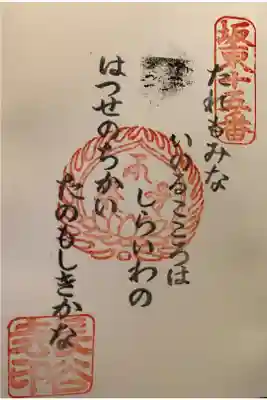 坂東十五番
たれもみな
いのるこころは
しらいわの
はつせのちかい
たのもしきかな